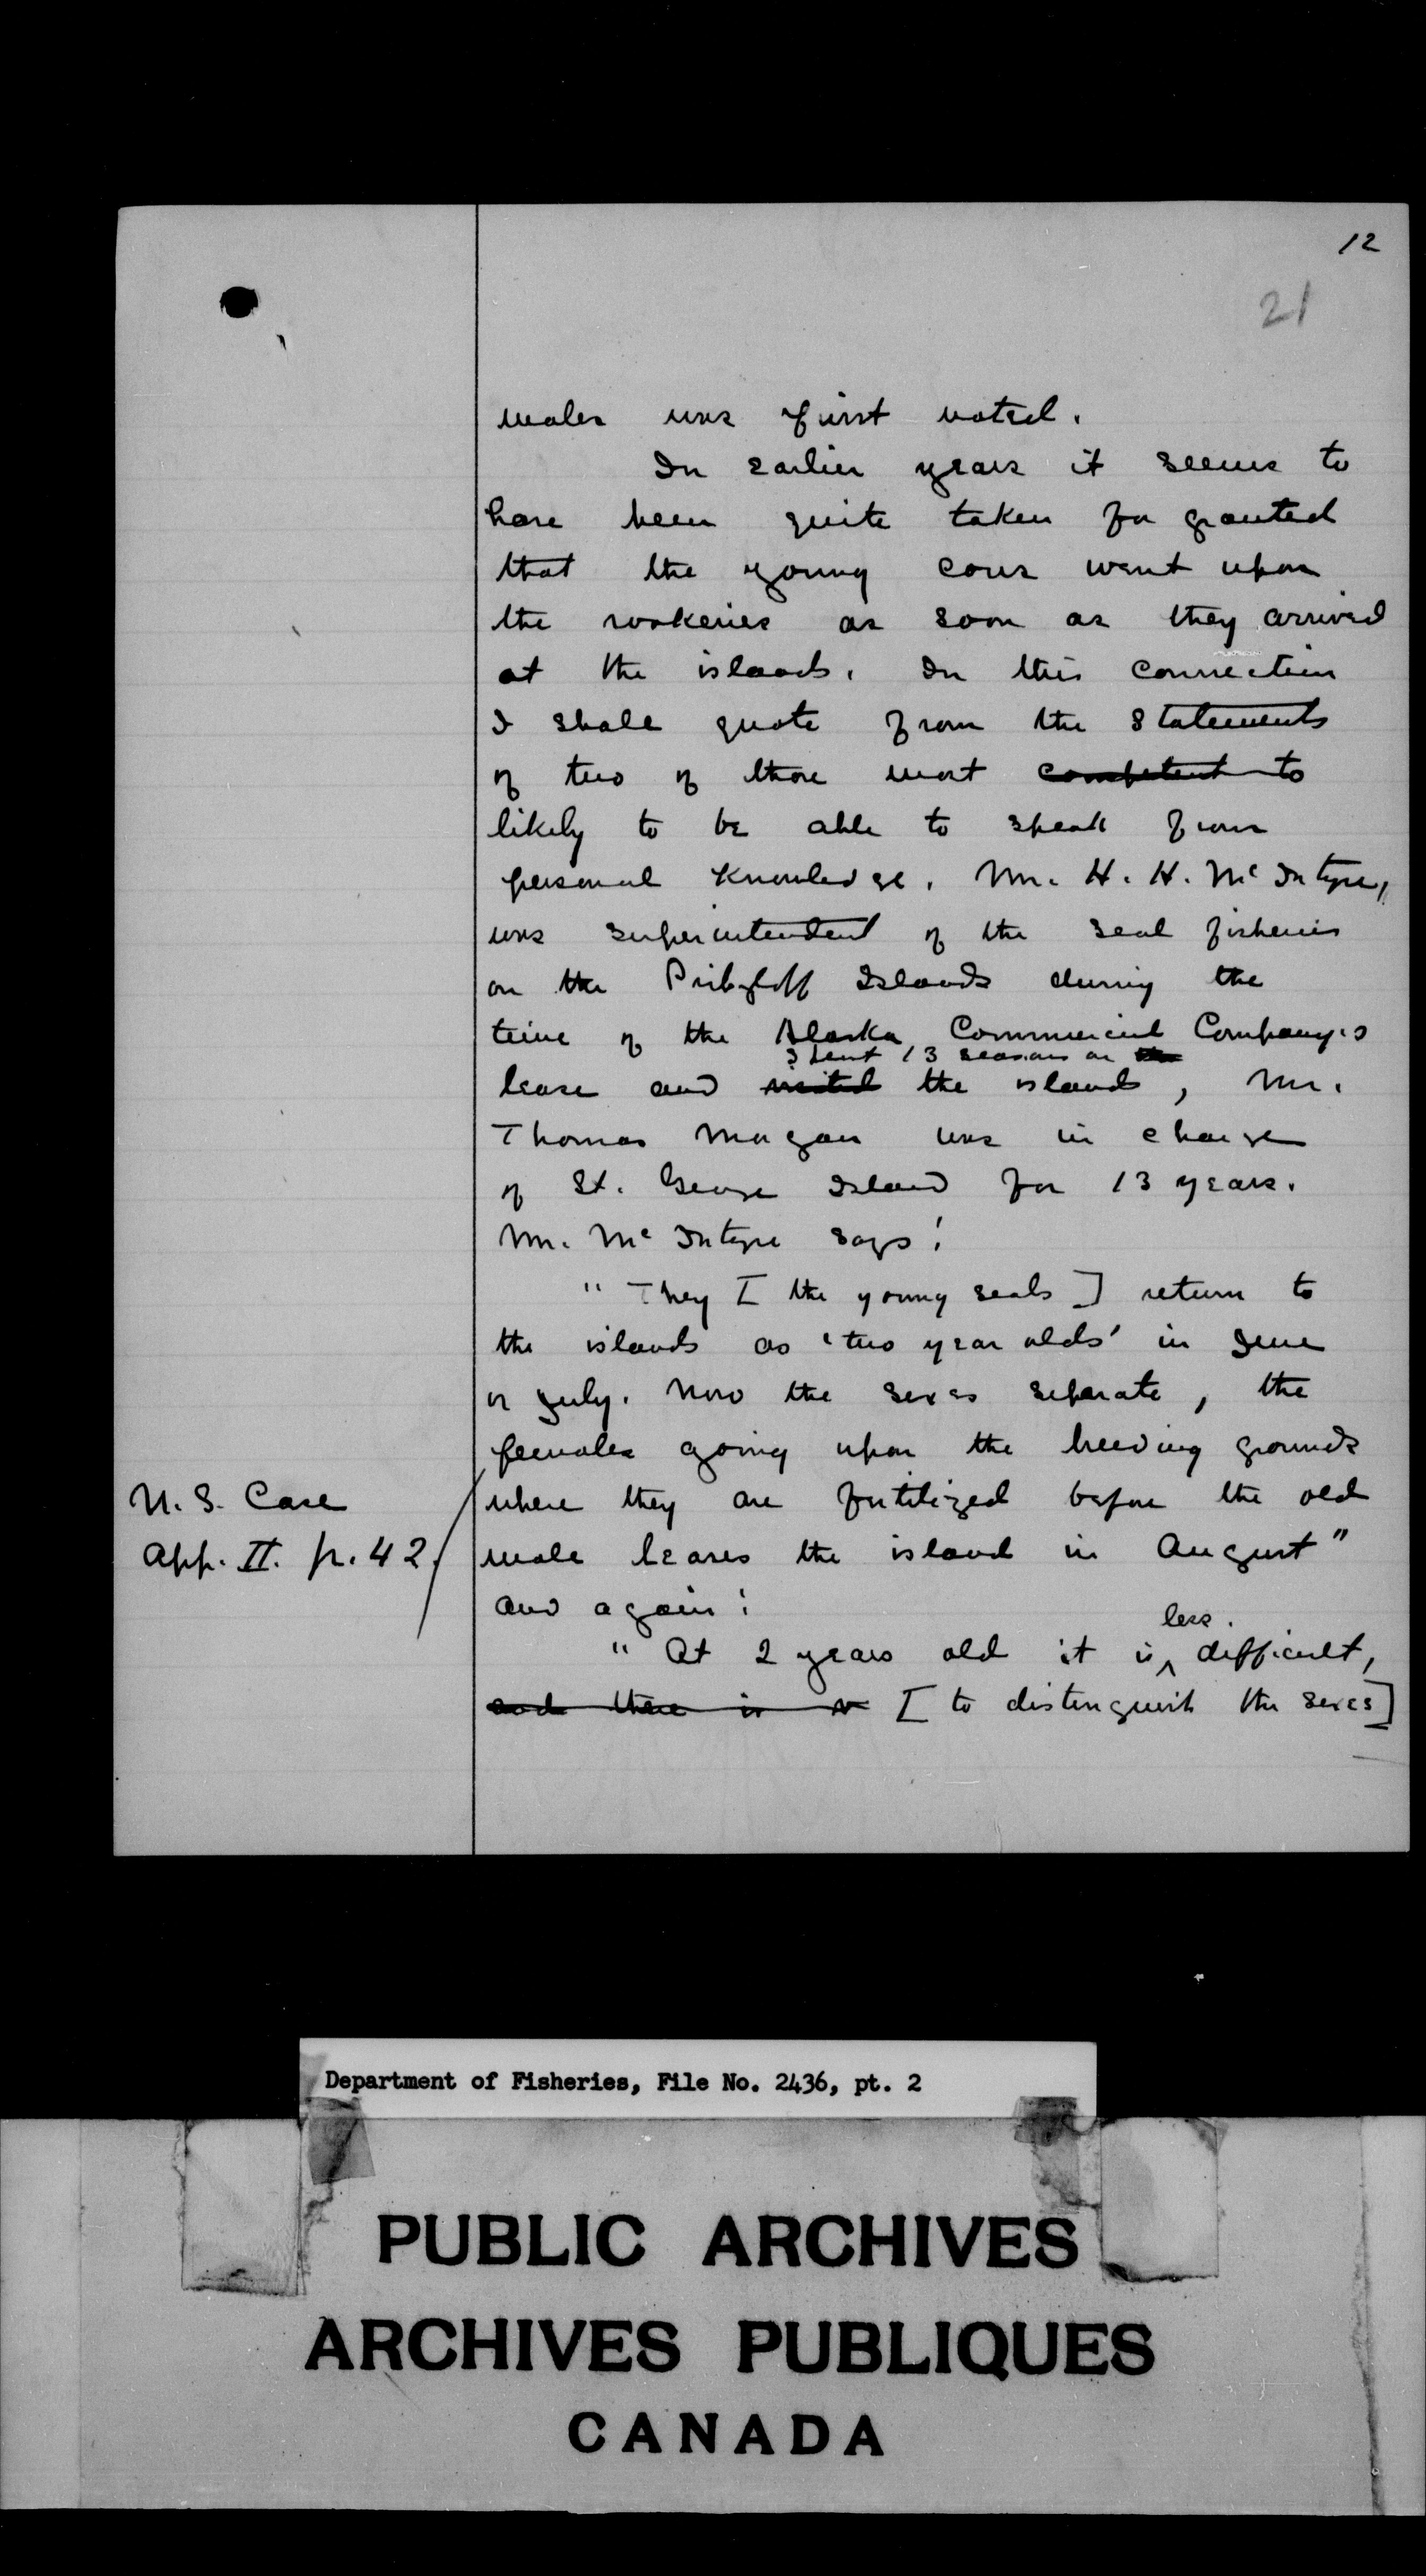 12
21
males was first noted.
In earlier years it seems to
have been quite taken for granted
that the young cows went upon
the rookeries as soon as they arrived
at the islands. In this connection
I shall quote from the statements
of two of those most competent to
likely to be able to speak from
personal knowledge. Mr. H. H. McIntyre,
was superintendent of the seal fisheries
on the Pribyloff Islands during the
time of the Alaska Commercial Company's
spent 13 seasons on the
lease and visited the islands, Mr.
Thomas Morgan was in charge
of St. George Island for 13 years.
Mr. McIntyre says:
"They [the young seals] return to
the islands as 'two year olds' in June
or July. Now the sexes separate, the
females going upon the breeding grounds
U.S. Case
where they are fertilized before the old
App. II. p. 42.
male leaves the island in August"
and again:
less
"At 2 years old it is difficult,
and there is [to distinguish the sexes]
Department of Fisheries, File No. 2436, pt. 2
PUBLIC ARCHIVES
ARCHIVES PUBLIQUES
CANADA